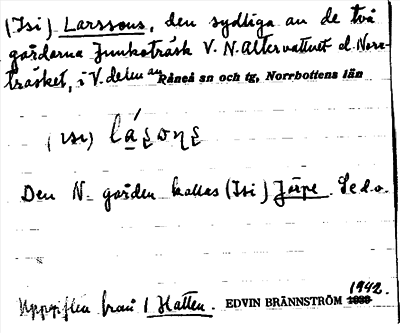 (Isi) Larssons, den sydliga av de två
gårdarna Junkoträsk V. N. Altervattnet el. Norr-
träsket, i V. delen av Råneå sn och tg, Norrbottens län
Den N- gården kallas (Isi) Järpe. Se d.o.
Uppgiften från 1 Hatten. EDVIN BRÄNNSTRÖM 1942.